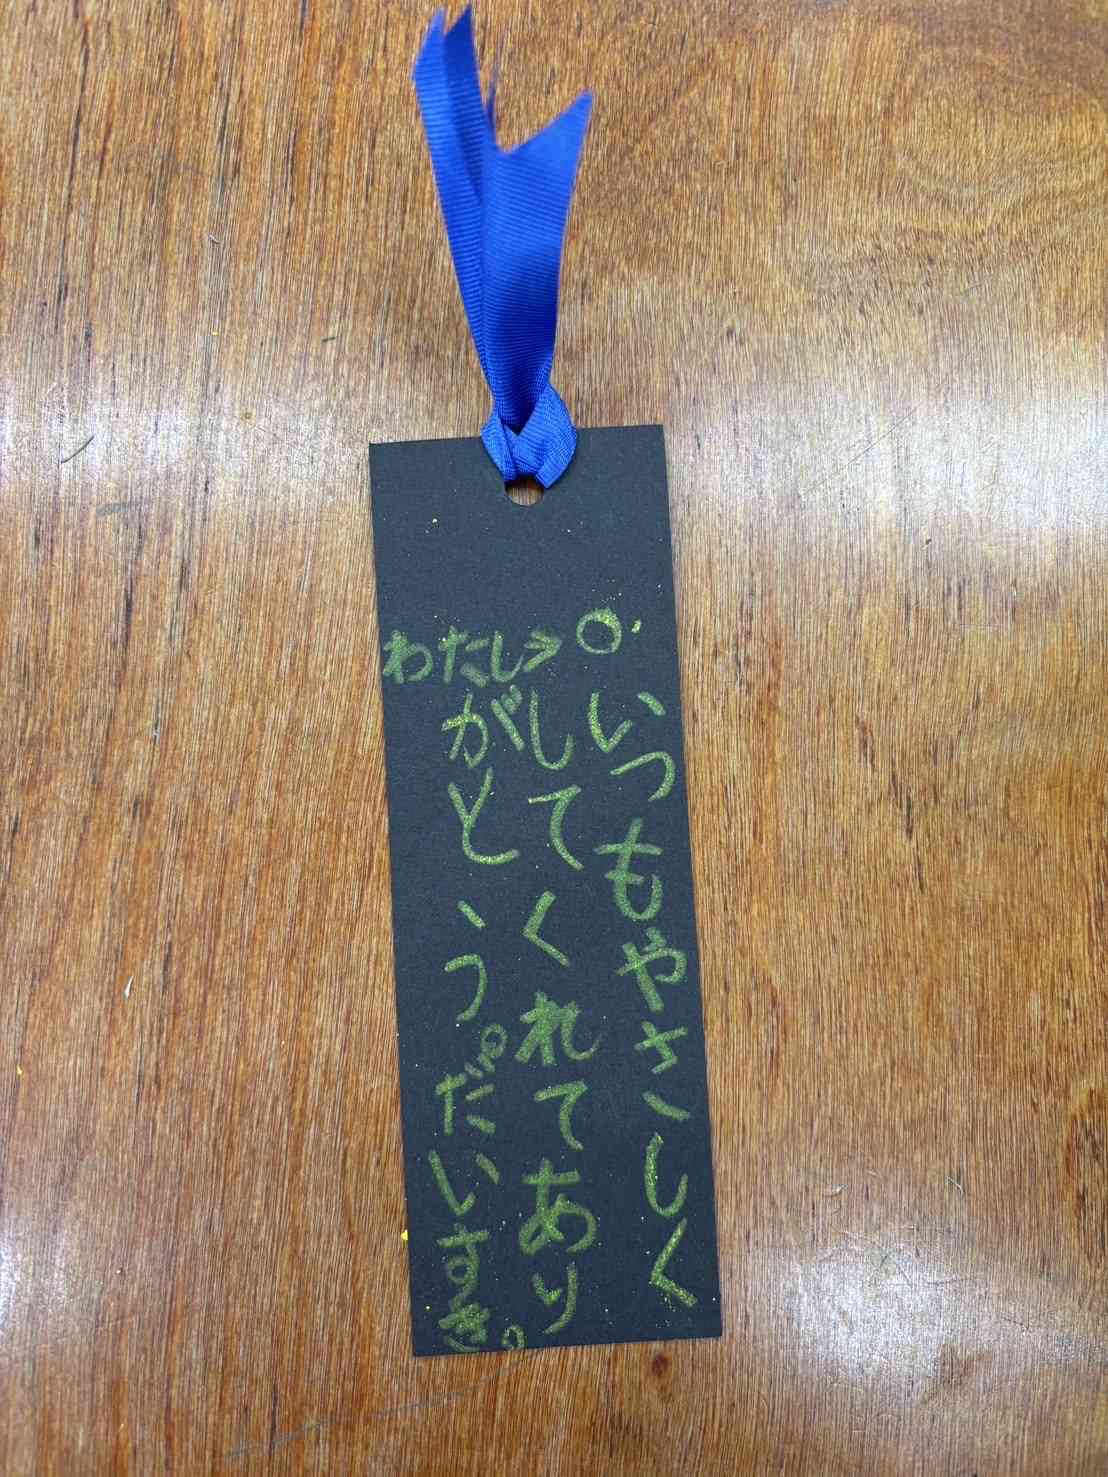 わたし→○
いつもやさしく
してくれてあり
がとう。だいすき。